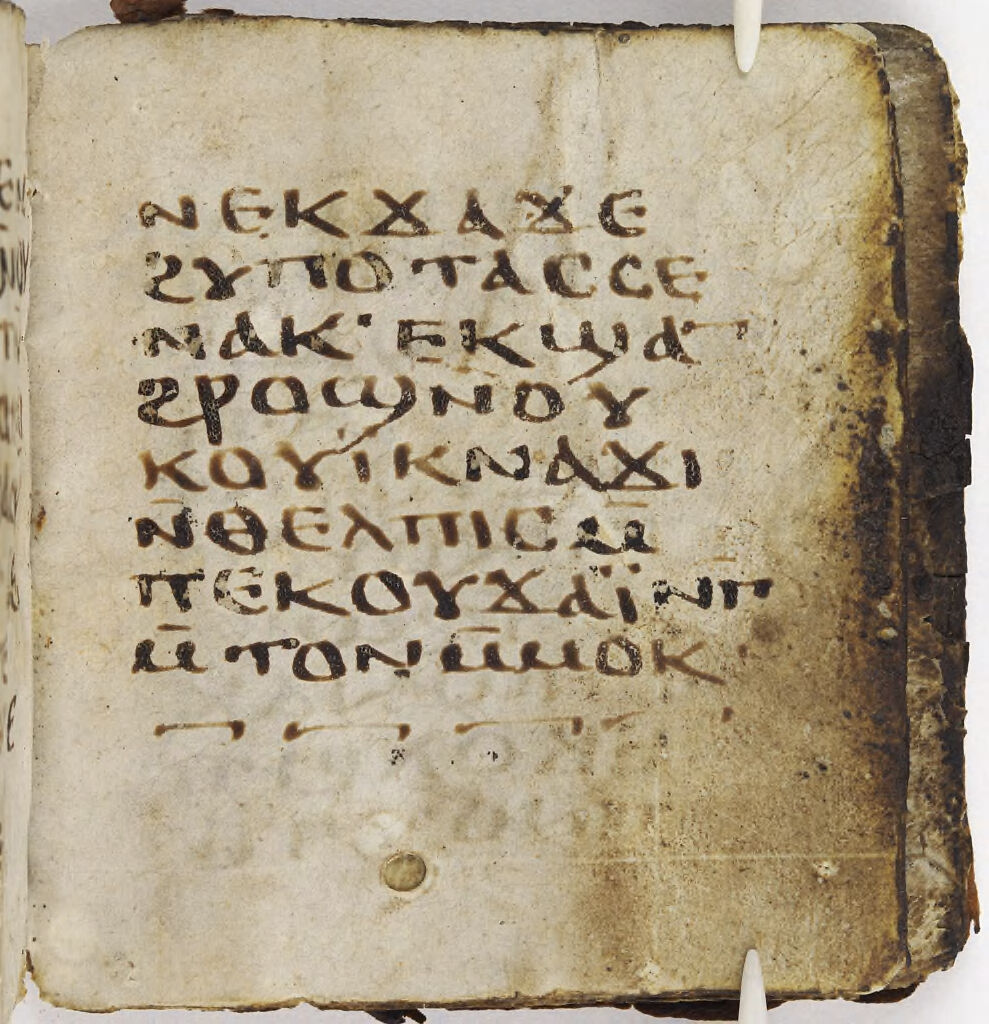 ⲛⲉⲕϫⲁϫⲉ
ϩⲩⲡⲟⲧⲁⲥⲥⲉ
ⲛⲁⲕ· ⲉⲕϣⲁ̄
ϩⲣⲟϣⲛⲟⲩ
ⲕⲟⲩⲓⲕⲛⲁϫⲓ
ⲛ̄ⲑⲉⲗⲡⲓⲥⲙ̄
ⲡⲉⲕⲟⲩϫⲁⲓ̈ⲛ̄ⲅ
ⲙ̄ⲧⲟⲛⲙ̄ⲙⲟⲕ